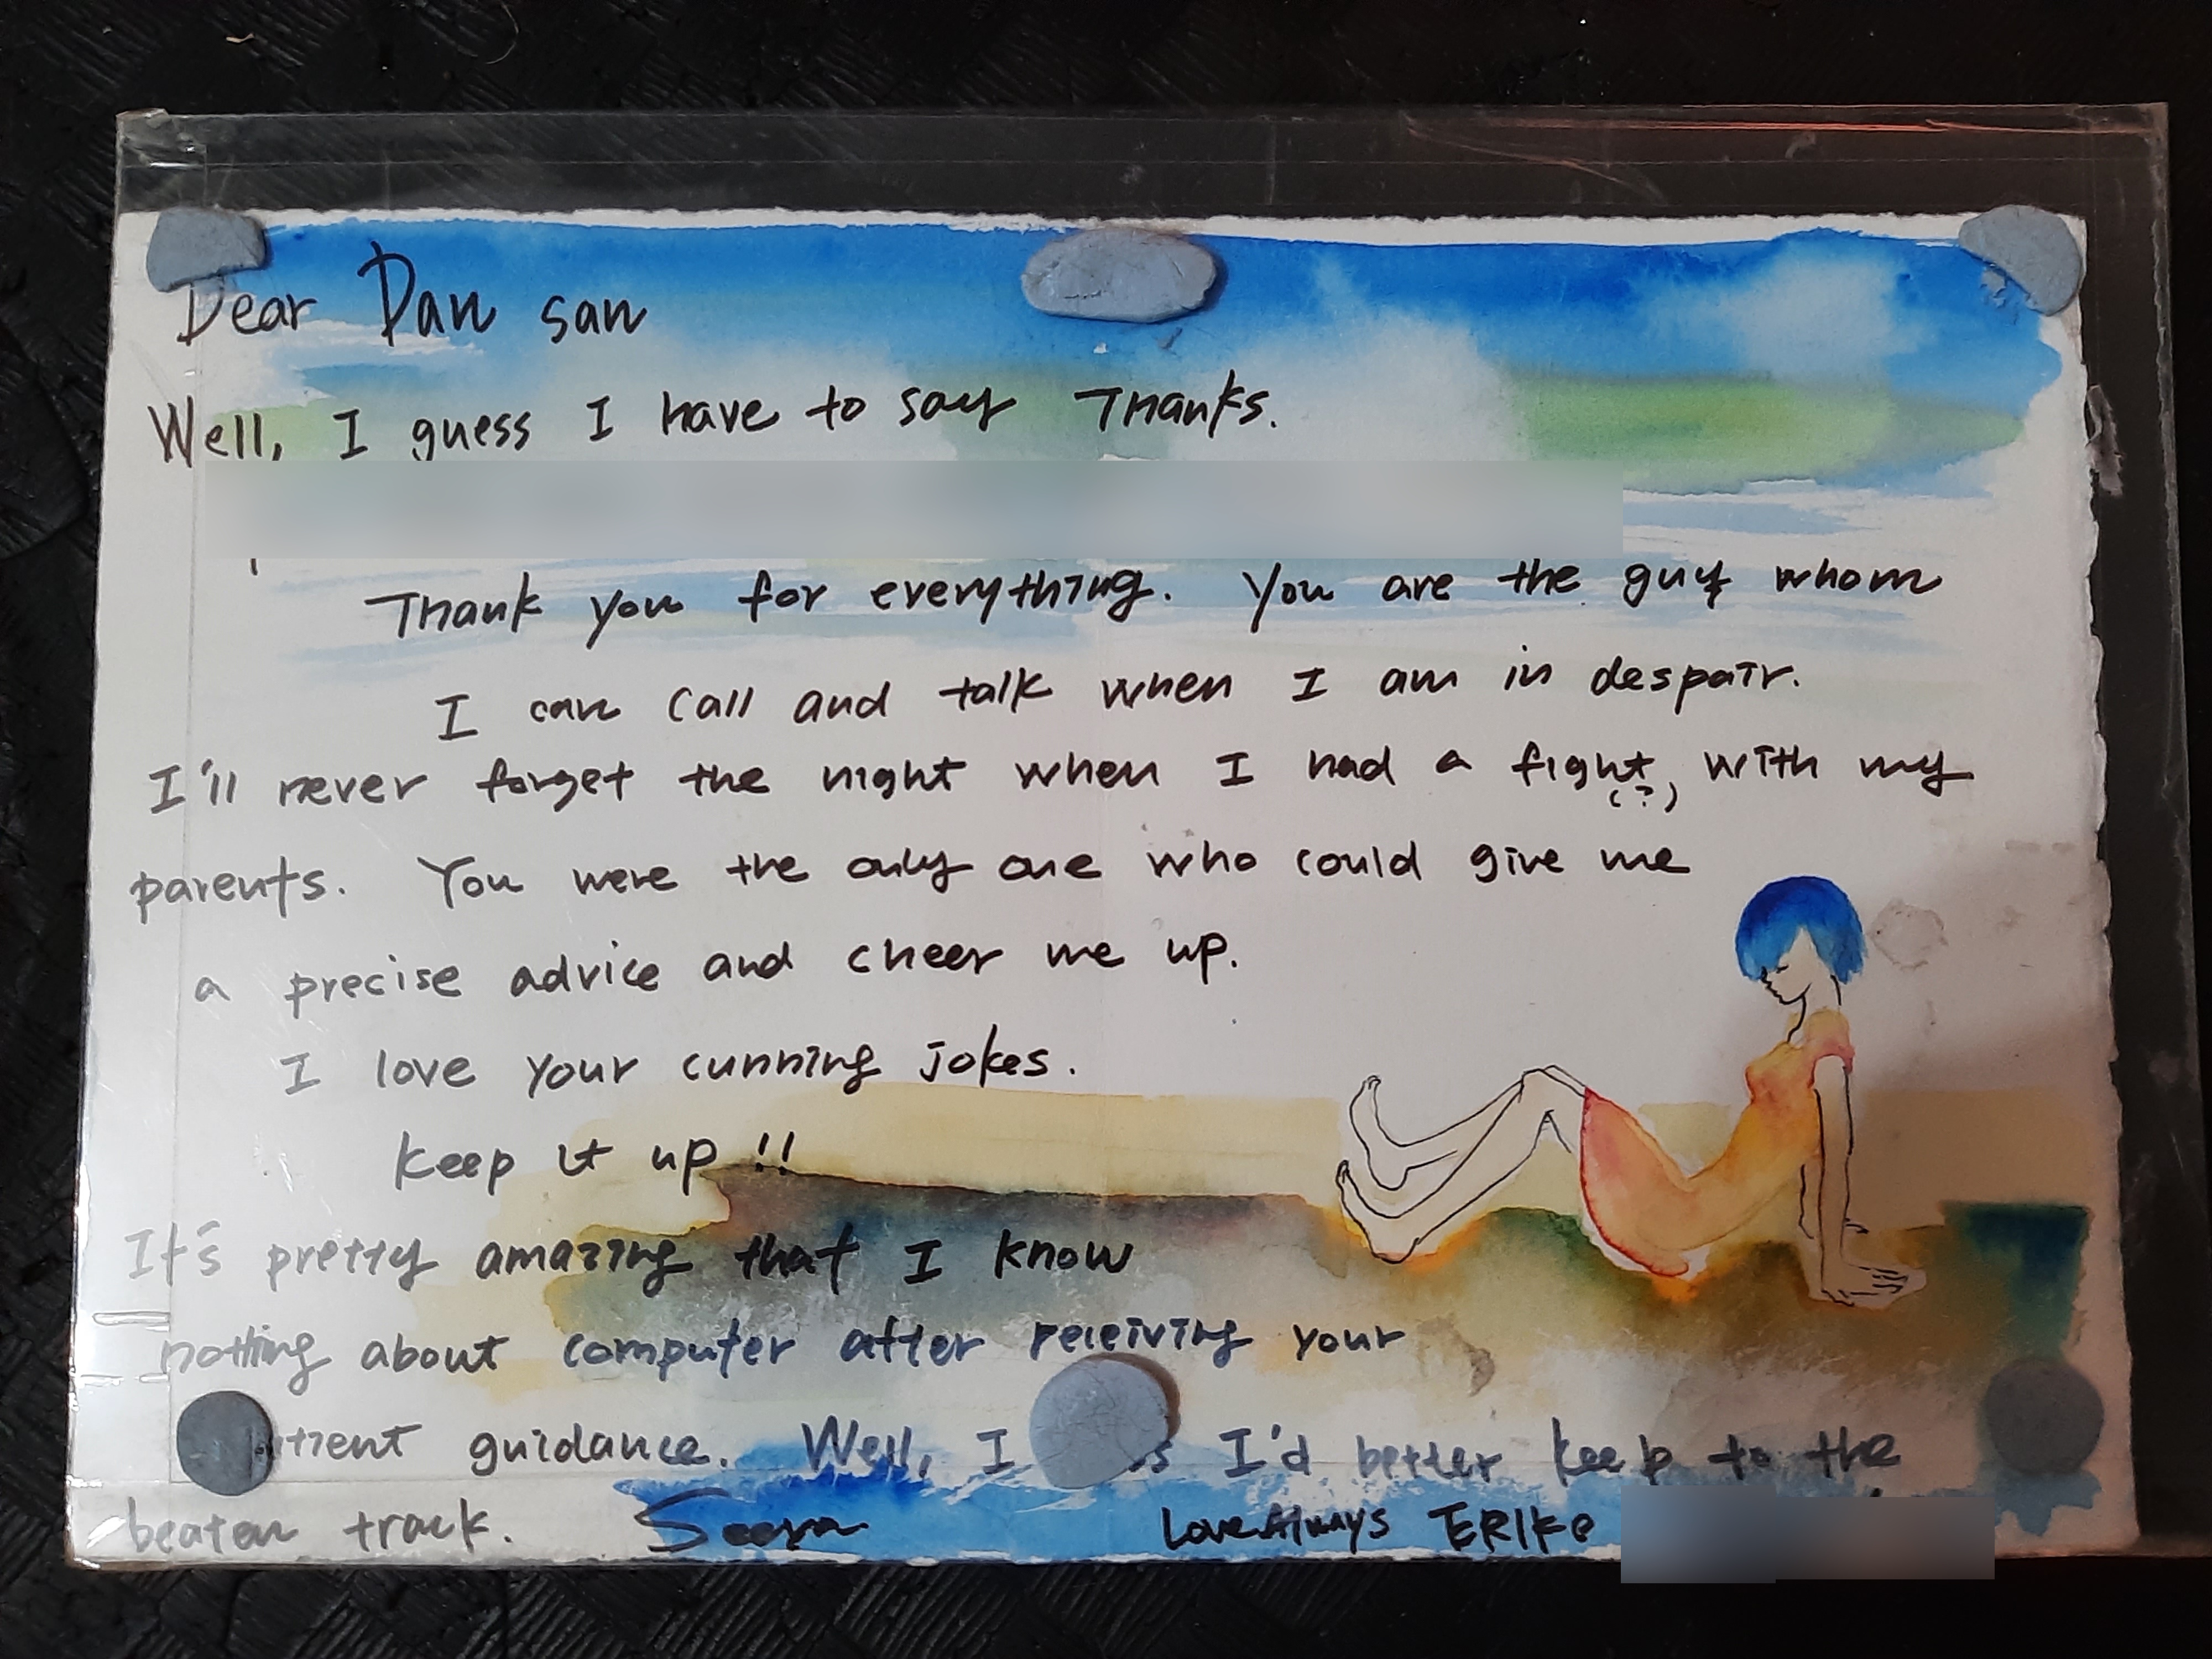 Dear Dan san
Well, I guess I have to say Thanks.
Thank you for everything. You are the guy whom
I can call and talk when I am in despair.
I'll never forget the night when I had a fight with my
(?)
parents. You were the only one who could give me
a precise advice and cheer me up.
I love your cunning jokes.
Keep it up !!
It's pretty amazing that I know
nothing about computer after receiving your
guidance. Well, I I'd better keep to the
beaten track.
Love Always ERIKO